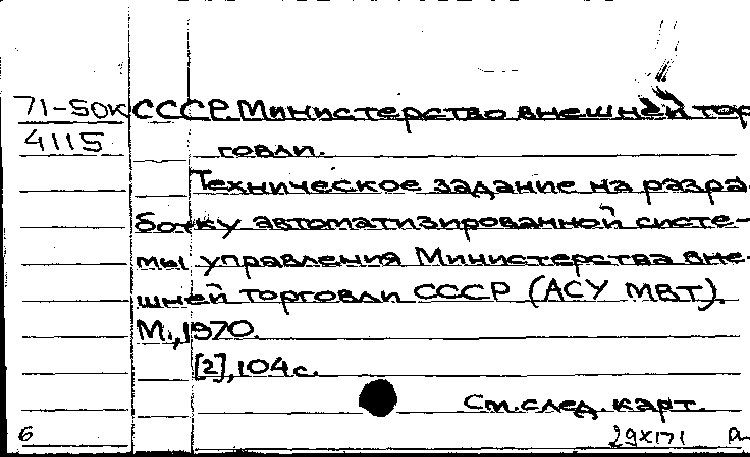 71-50к СССР. Министерство внешней тор
4115 говли.
Техническое задание на разра
ботку автоматизированной систе-
мы управления Министерства вне-
шней торговли СССР (АСУ МВТ).
М., 1970.
[2], 104 с.
См. след. карт.
6 29XI71